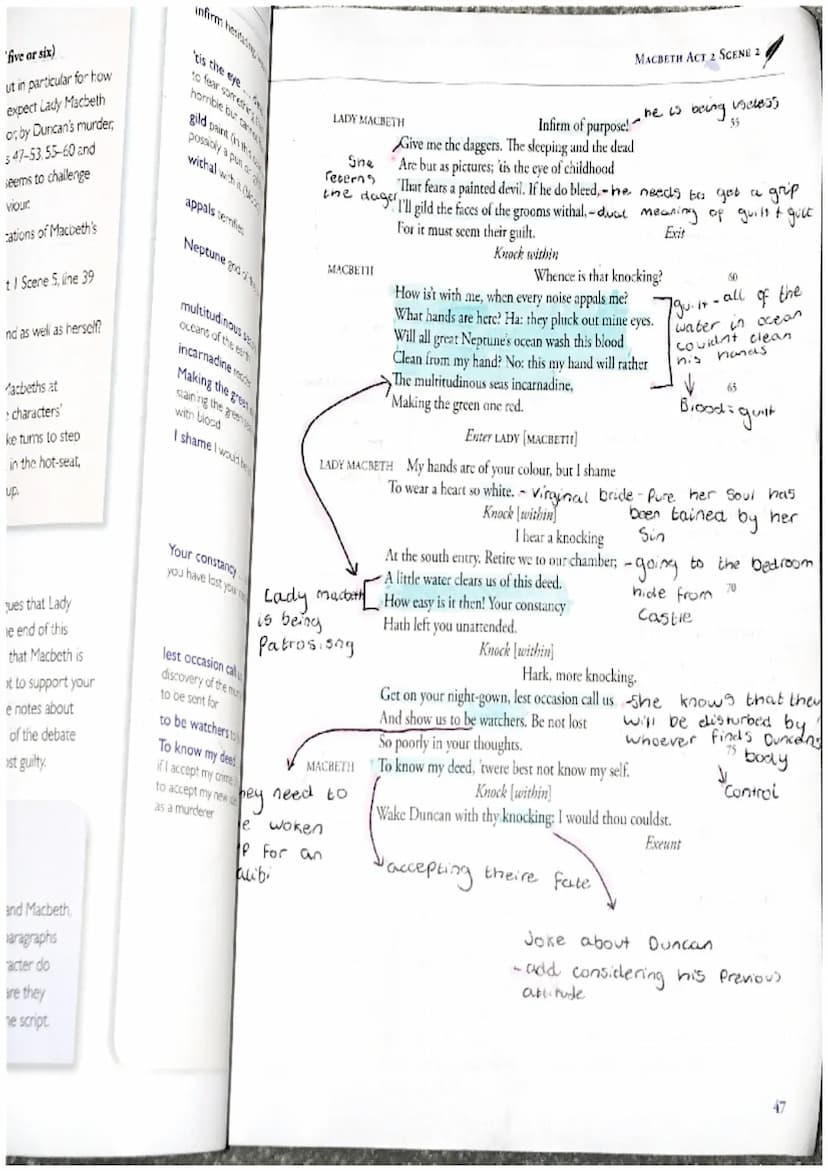 five or six)
ut in particular for how
expect Lady Macbeth
or, by Duncan's murder,
s 47–53, 55–60 and
seems to challenge
viour.
cations of Macbeth's
t 1 Scene 5, line 39
nd as well as herself?
Macbeths at
characters'
ke turns to step
in the hot-seat,
up.
gues that Lady
he end of this
that Macbeth is
ot to support your
e notes about
of the debate
ost guilty.
and Macbeth,
paragraphs
racter do
are they
he script.
infirm
'tis the eye
to fear
horrible but
gild paint (in
possibly a pun
withal with it
appals terrifies
Neptune god of
multitudinous
oceans of the
incarnadine
Making the green
staining the green
with blood
I shame I would
Your constancy
you have lost
lest occasion call us
discovery of the
to be sent for
to be watchers to
To know my deed
if I accept my crime
to accept my new
as a murderer
MACBETH ACT 2 SCENE 2
LADY MACBETH Infirm of purpose! - he is being useless
55
Give me the daggers. The sleeping and the dead
She reterns the dager
Are but as pictures; 'tis the eye of childhood
That fears a painted devil. If he do bleed, - he needs to get a grip
I'll gild the faces of the grooms withal, - dual meaning of guilt + guilt
For it must seem their guilt. Exit
Knock within
MACBETH Whence is that knocking?
60
How is't with me, when every noise appals me?
What hands are here? Ha: they pluck out mine eyes.
Will all great Neptune's ocean wash this blood
Clean from my hand? No: this my hand will rather
The multitudinous seas incarnadine,
65
Making the green one red.
guilt - all of the
water in ocean
couldnt clean
his hands
Blood = guilt
Enter LADY [MACBETH]
LADY MACBETH My hands are of your colour, but I shame
To wear a heart so white. - Virginal bride - Pure her soul has
been tained by her
Sin
Knock [within]
I hear a knocking
At the south entry. Retire we to our chamber; - going to the bedroom
hide from
Castle
70
A little water clears us of this deed.
How easy is it then! Your constancy
Hath left you unattended.
Lady macbeth
is being
Patrosisng
Knock [within]
Hark, more knocking.
Get on your night-gown, lest occasion call us - she knows that they
And show us to be watchers. Be not lost
will be disturbed by
whoever finds Duncans
body
Control
So poorly in your thoughts.
75
MACBETH To know my deed, 'twere best not know my self.
hey need to
e woken
P for an
alibi
Knock [within]
Wake Duncan with thy knocking: I would thou couldst.
Exeunt
accepting theire fate
Joke about Duncan
- odd considering his previous
attitude
47